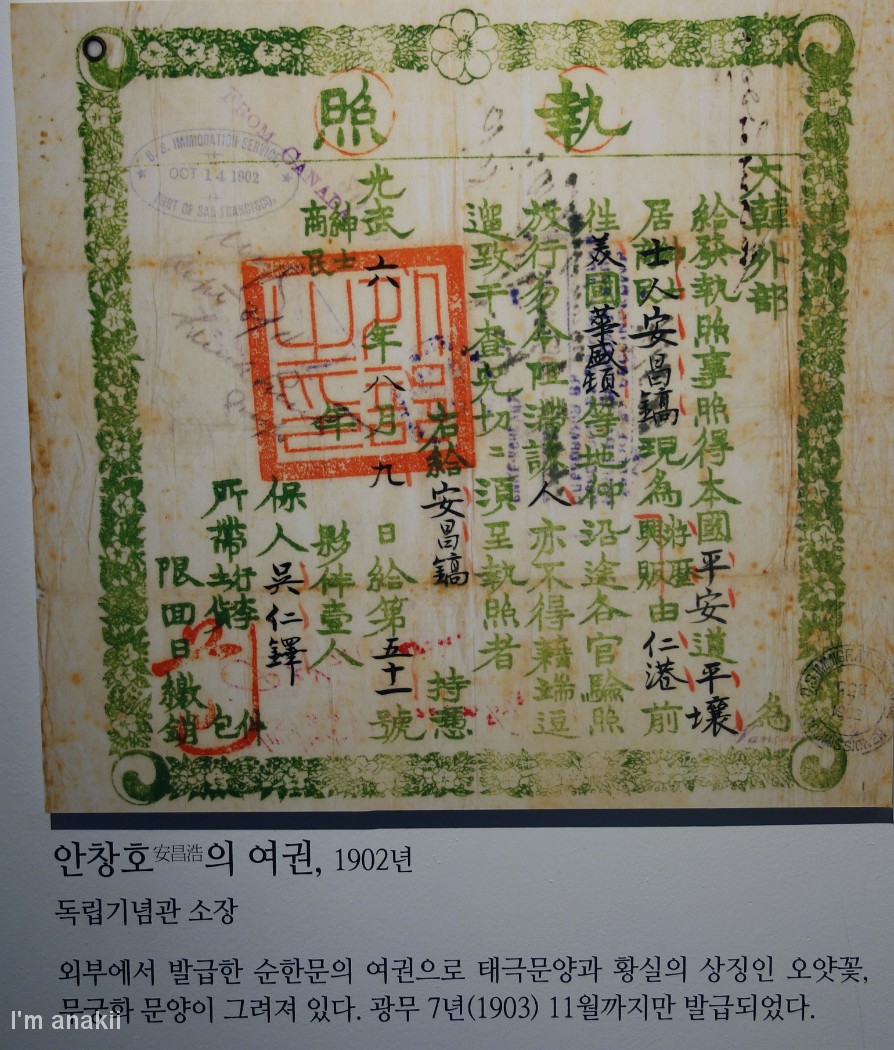 執照
大韓外部 為
給發執照事照得本國平安道平壤
居士人安昌鎬現為游歷興販由仁港前
往美國華盛頓等地仰沿途各官驗照
放行勿令阻滯該人亦不得藉端逗
遛致干查究切〻須至執照者
右給安昌鎬 持憑
光武六年八月九日給第五十一號
紳士商民 年 影件壹人
保人吳仁鐸
所帶行李土貨 包件
限回日繳銷
FROM CANADA
U. S. IMMIGRATION SERVICE,
OCT 14 1902
PORT OF SAN FRANCISCO.
안창호安昌浩의 여권, 1902년
독립기념관 소장
외부에서 발급한 순한문의 여권으로 태극문양과 황실의 상징인 오얏꽃,
무궁화 문양이 그려져 있다. 광무 7년(1903) 11월까지만 발급되었다.
I'm anakii